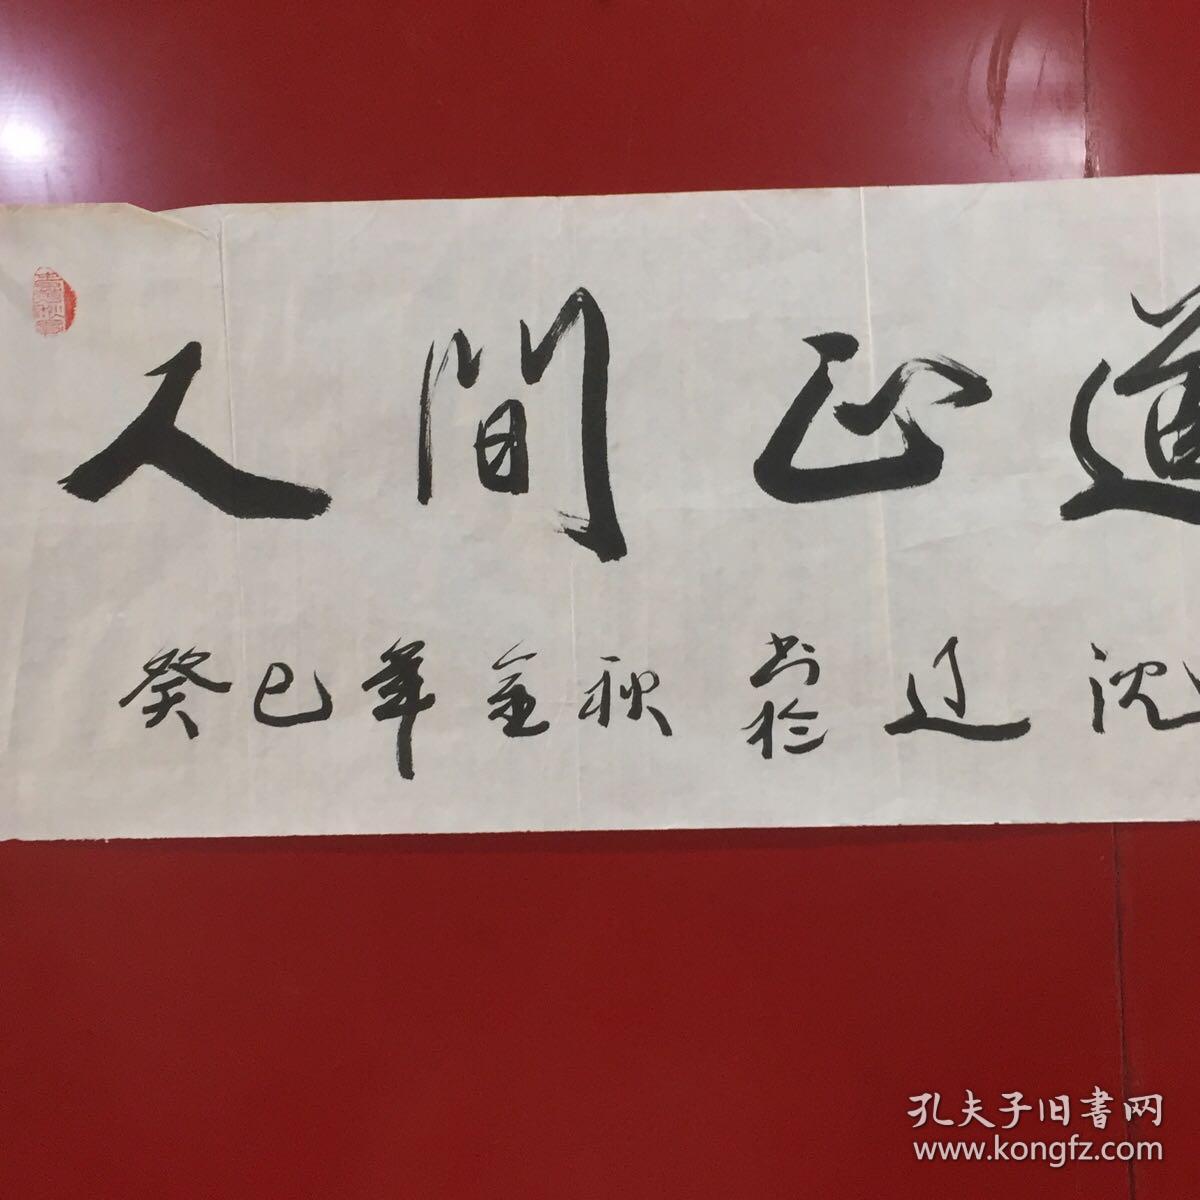 人間正道
癸巳年金秋书於辽沈
孔夫子旧書网
www.kongfz.com